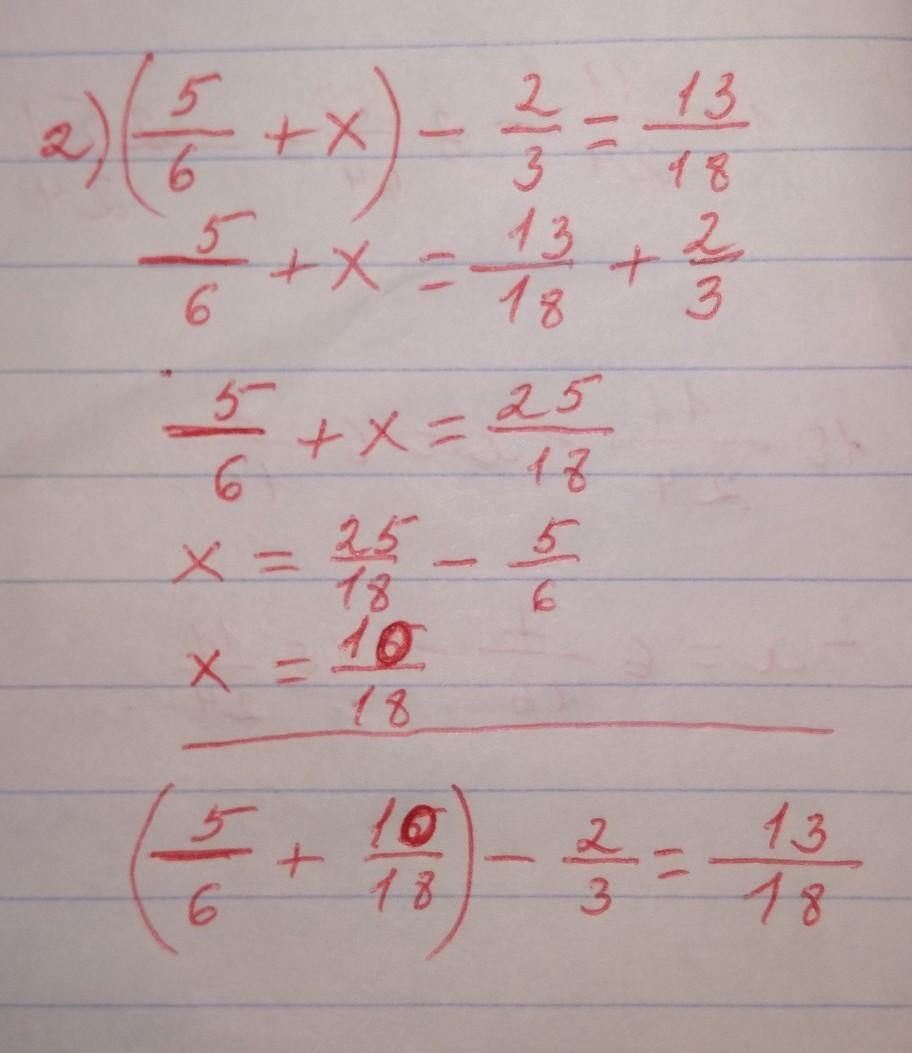 2) (5/6 + x) - 2/3 = 13/18
5/6 + x = 13/18 + 2/3
5/6 + x = 25/18
x = 25/18 - 5/6
x = 10/18
(5/6 + 10/18) - 2/3 = 13/18